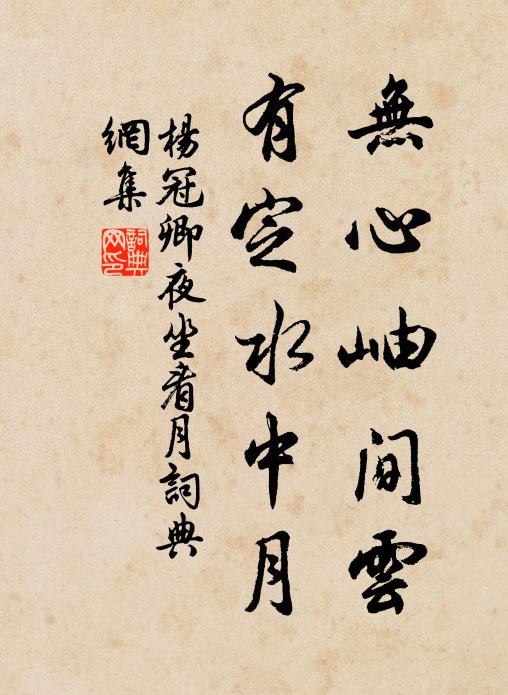 無心岫間雲
有定水中月
楊冠卿夜坐看月詞典
網集
詞典
网印